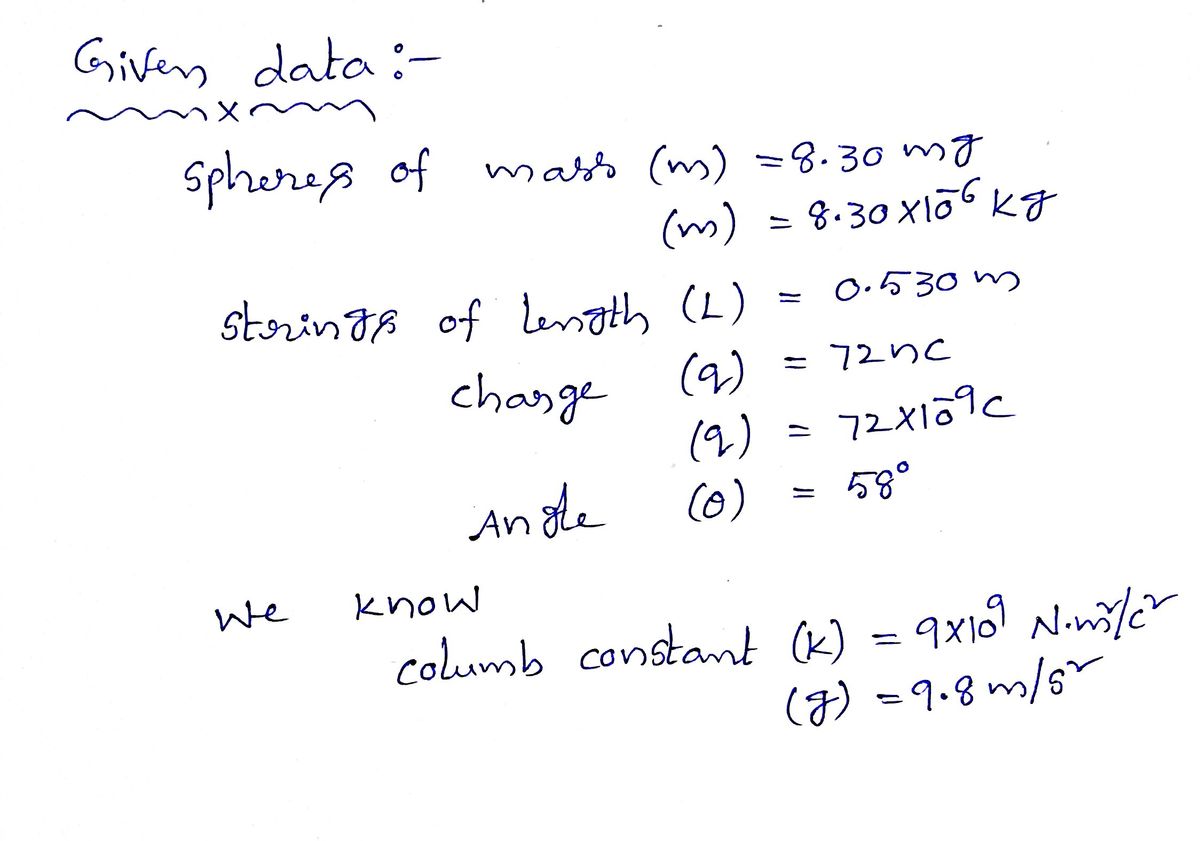 Given data :-
spheres of mass (m) = 8.30 mg
(m) = 8.30 X 10⁻⁶ kg
strings of length (L) = 0.530 m
charge (q) = 72nC
(q) = 72X10⁻⁹C
Angle (θ) = 58°
We know
columb constant (k) = 9X10⁹ N.m²/c²
(g) = 9.8 m/s²